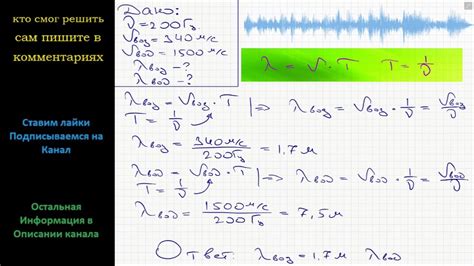 кто смог решить
сам пишите в
комментариях
Ставим лайки
Подписываемся на
Канал
Остальная
Информация в
Описании канала
Дано:
ν = 200Гц
υвоз = 340 м/с
υвод = 1500 м/с
λвоз - ?
λвод - ?
λ = υ · T   T = 1/ν
λвоз = υвоз · T | ⇒ λвоз = υвоз · 1/ν = υвоз/ν
T = 1/ν
λвоз = 340 м/с / 200 Гц = 1,7 м
λвод = υвод · T | ⇒ λвод = υвод · 1/ν = υвод/ν
T = 1/ν
λвод = 1500 м/с / 200 Гц = 7,5 м
Ответ: λвоз = 1,7 м λвод